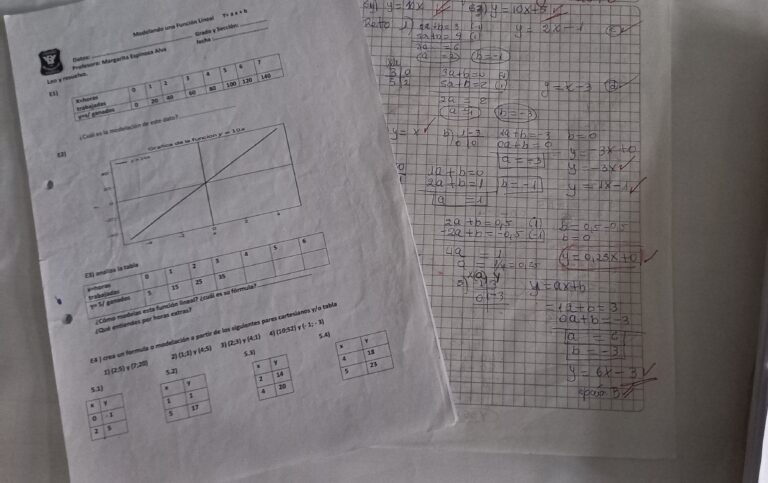 Modelando una Función Lineal Y= a x + b
Datos:
Grado y Sección:
Profesora: Margarita Espinoza Alva
fecha
Leo y resuelvo.
E1)
x=horas trabajadas 0 1 2 3 4 5 6 7
y=s/ ganados 0 20 40 60 80 100 120 140
¿Cuál es la modelación de este dato?
E2)
Grafica de la funcion y = 10x
E3) analiza la tabla
x=horas trabajadas 0 1 2 3 4 5 6
y= S/ ganados 5 15 25 35
¿Cómo modelas esta función lineal? ¿cuál es su fórmula?
¿Qué entiendes por horas extras?
E4 ) crea un formula o modelación a partir de los siguientes pares cartesianos y/o tabla
1) (2;5) y (7;20) 2) (1;1) y (4;5) 3) (2;3) y (4;1) 4) (10;52) y (- 1; - 3)
5.1) 5.2) 5.3) 5.4)
x y
0 - 1
2 5
x y
1 1
5 17
x y
2 14
4 20
x y
4 18
5 23
y = 10x+5
Reto
y = 2x-1
b=-1
y = x-3
2a = 2
a = 1
b = -3
y = x
b) 1 -3
0 0
1a+b = -3
0a+b = 0
a = -3
b = 0
y = -3x+0
y = -3x
1a+b=0
2a+b=1
a = 1
b = -1
y = 1x-1
2a+b=0,5 (1)
-2a+b=-0,5 (-1)
4a = 1
b = 0,5-0,5
b = 0
y = 0,25x+0
y = ax+b
0 -3
1a+b = 3
0a+b = -3
a = 6
b = -3
y = 6x-3